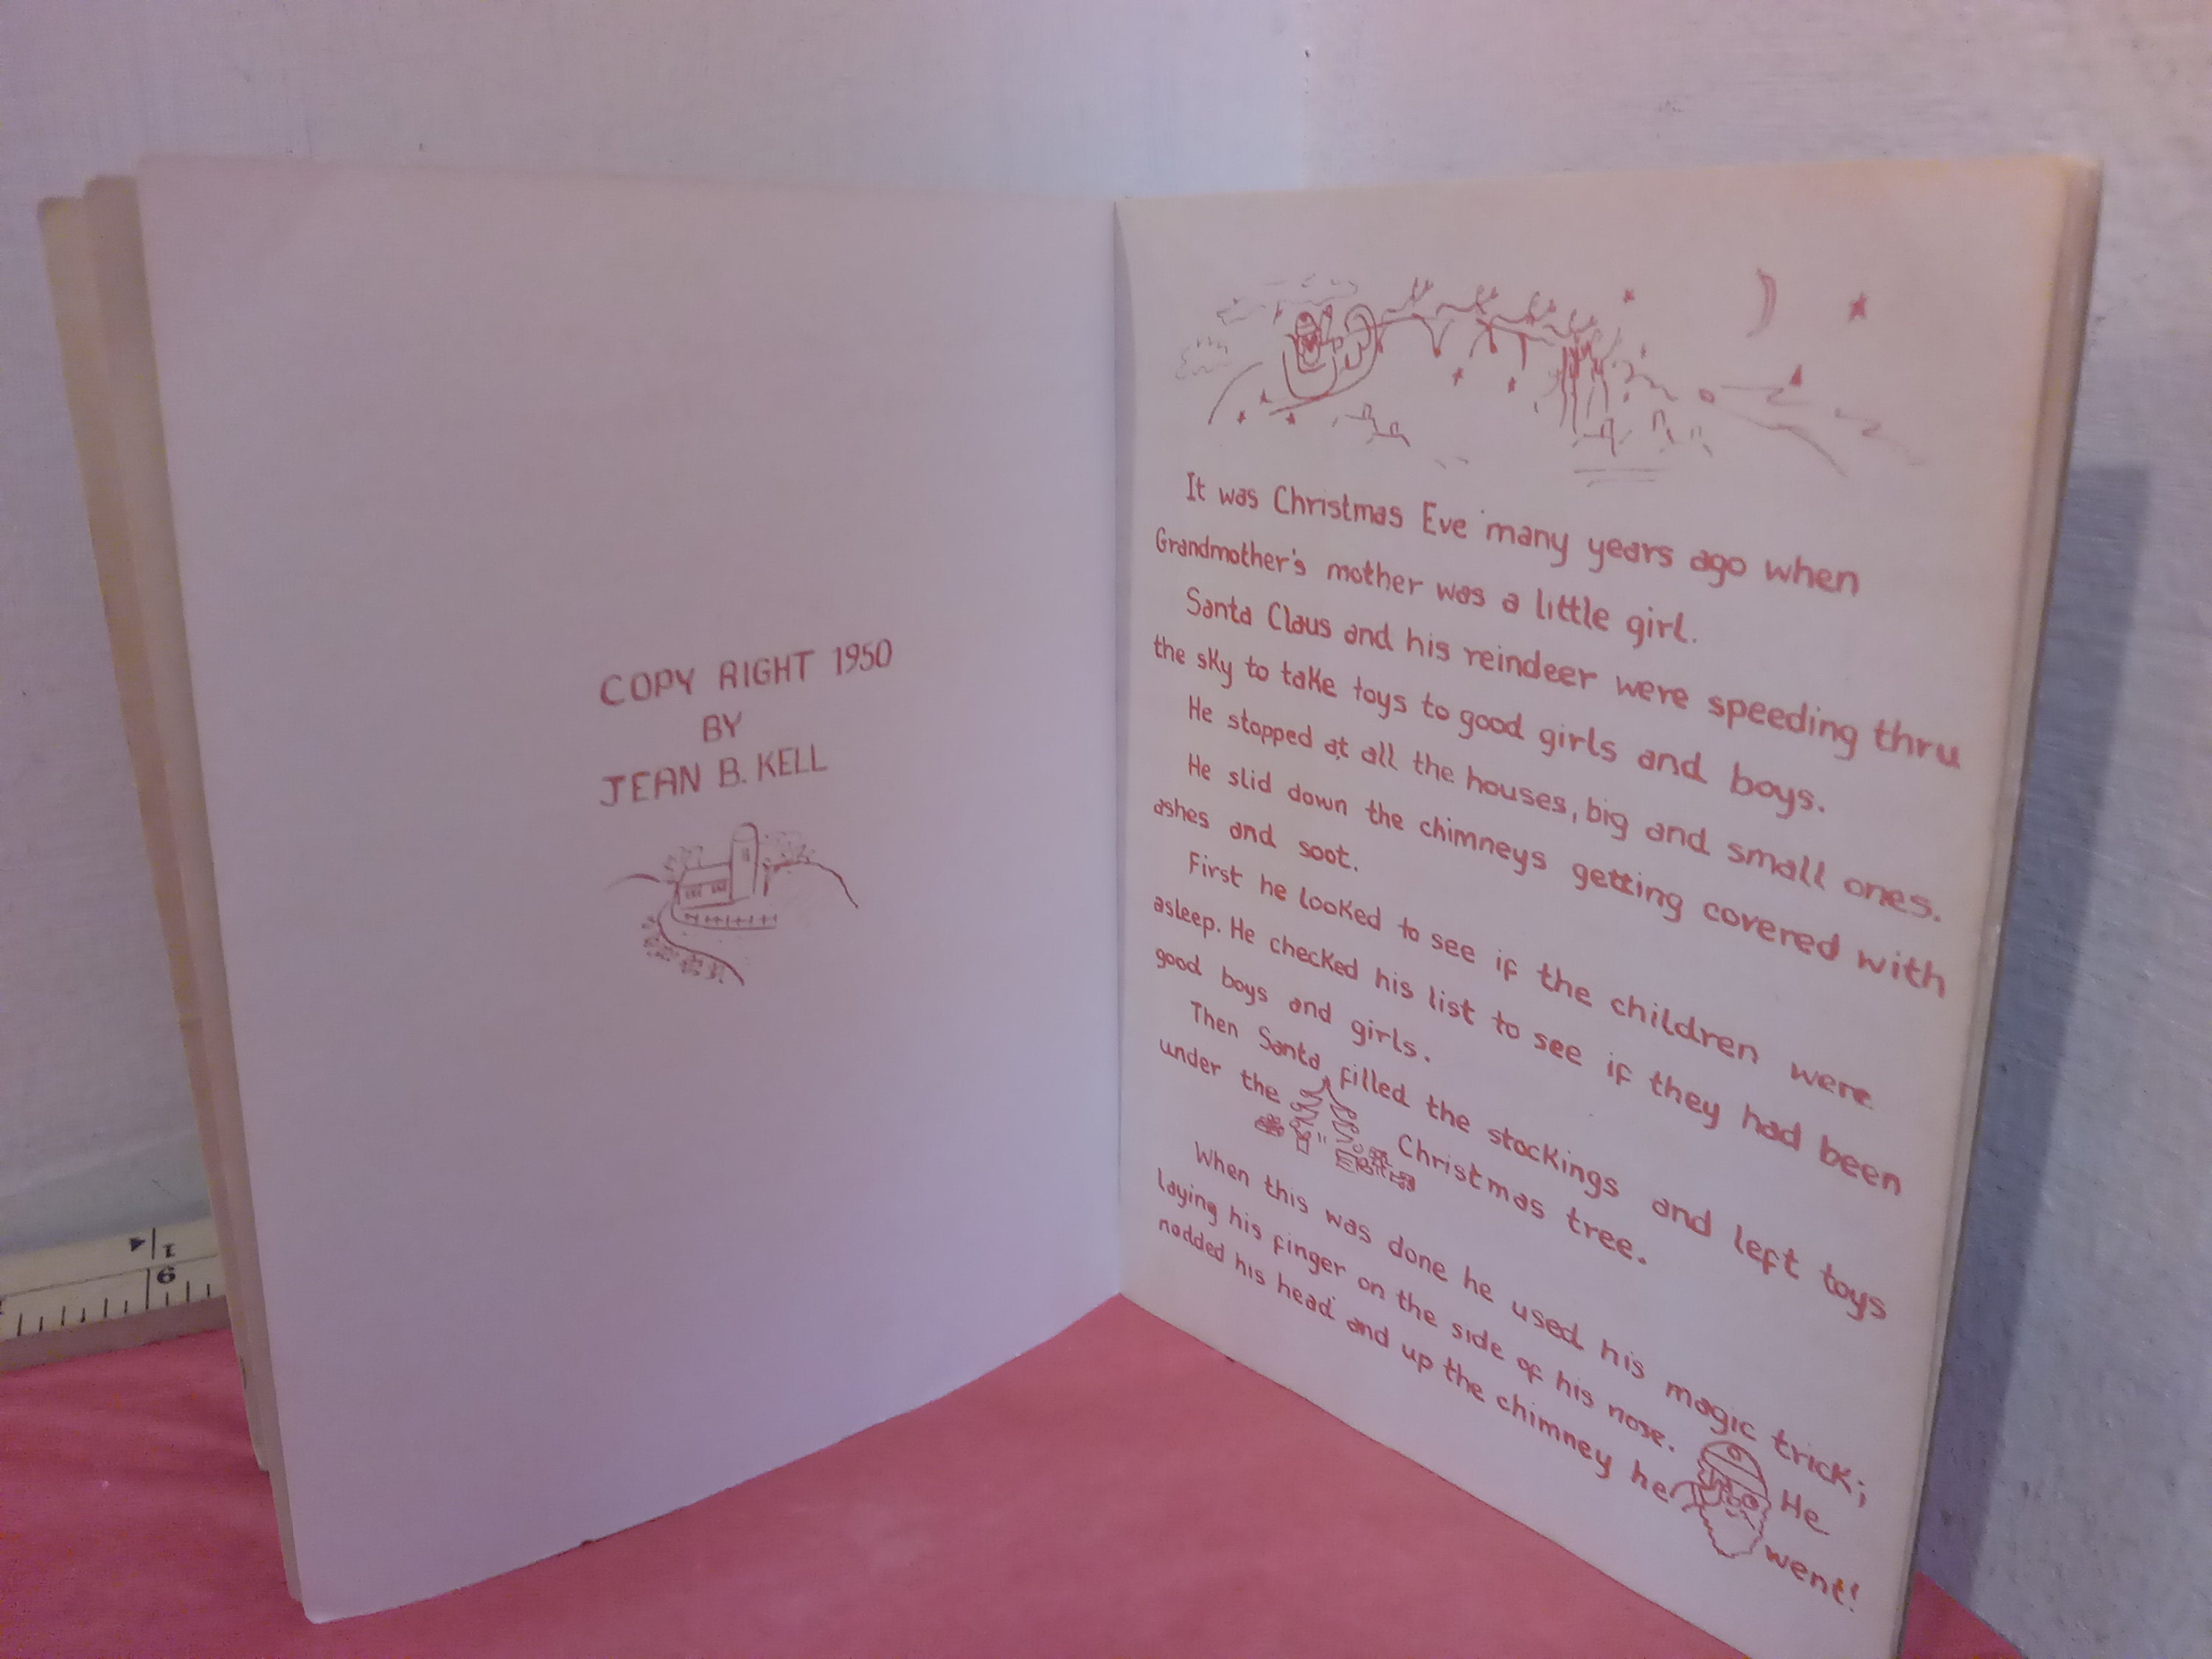 COPY RIGHT 1950
BY
JEAN B. KELL
It was Christmas Eve many years ago when
Grandmother's mother was a little girl.
Santa Claus and his reindeer were speeding thru
the sky to take toys to good girls and boys.
He stopped at all the houses, big and small ones.
He slid down the chimneys getting covered with
ashes and soot.
First he looked to see if the children were
asleep. He checked his list to see if they had been
good boys and girls.
Then Santa filled the stockings and left toys
under the Christmas tree.
When this was done he used his magic trick;
laying his finger on the side of his nose. He
nodded his head and up the chimney he went!
1
9